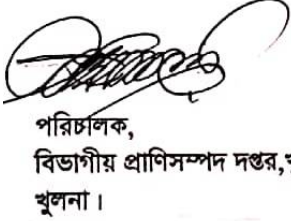 পরিচালক,
বিভাগীয় প্রাণিসম্পদ দপ্তর,
খুলনা।